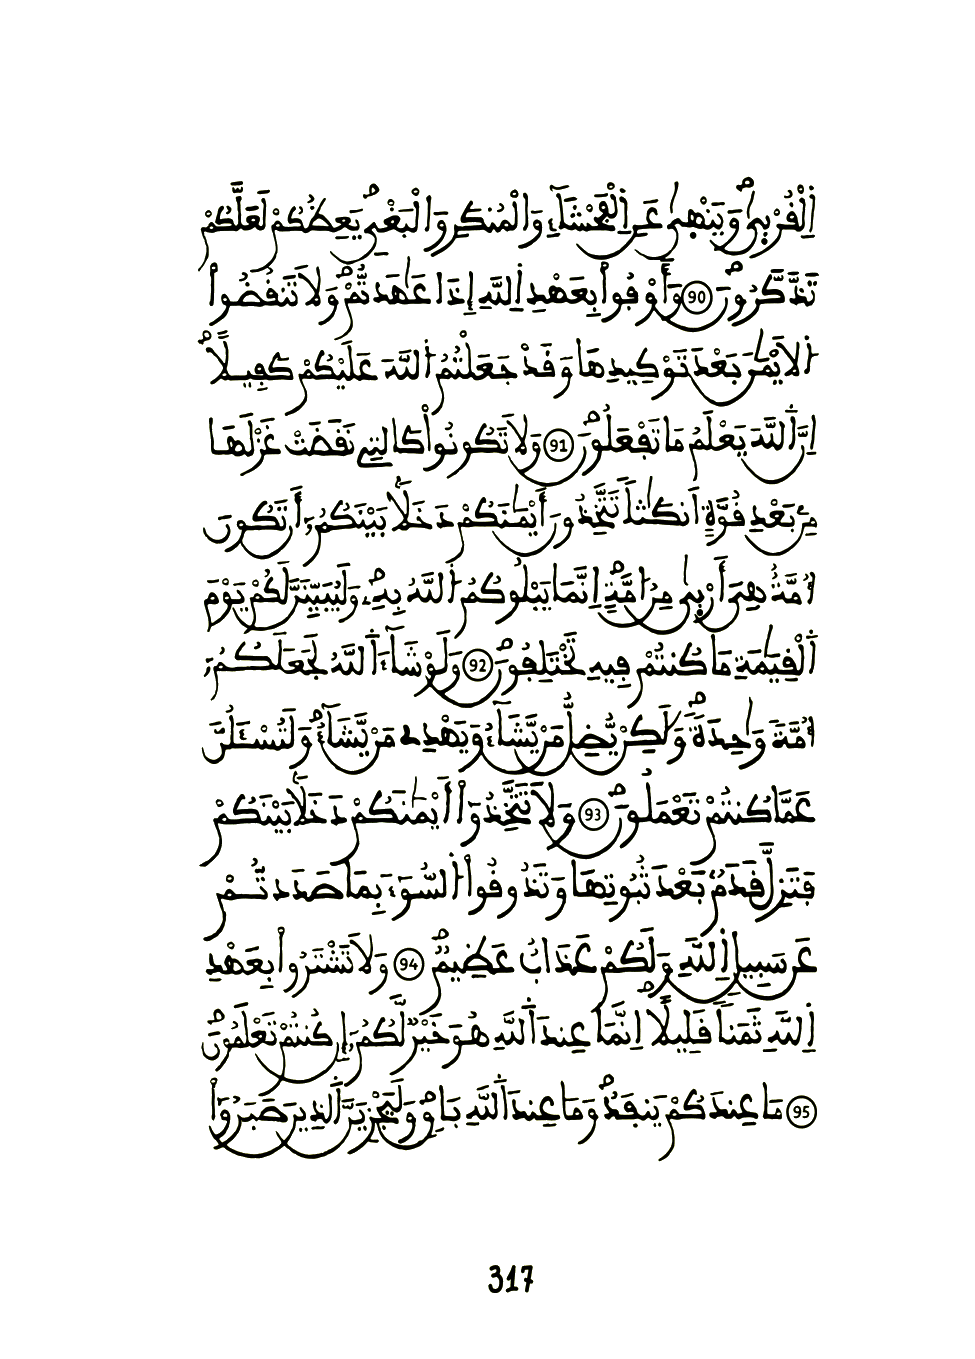 اِ۬لْقُرْب۪ىٰ وَيَنْه۪ىٰ عَنِ اِ۬لْفَحْشَآءِ وَالْمُنكَرِ وَالْبَغْيِۖ يَعِظُكُمْ لَعَلَّكُمْ
تَذَّكَّرُونَۖ 90 وَأَوْفُواْ بِعَهْدِ اِ۬للَّهِ إِذَا عَٰهَدتُّمْۖ وَلَا تَنقُضُواْ
اُ۬لَايْمَٰنَ بَعْدَ تَوْكِيدِهَا وَقَدْ جَعَلْتُمُ اُ۬للَّهَ عَلَيْكُمْ كَفِيلًاۖ
اِنَّ اَ۬للَّهَ يَعْلَمُ مَا تَفْعَلُونَۖ 91 وَلَا تَكُونُواْ كَالتِے نَقَضَتْ غَزْلَهَا
مِنۢ بَعْدِ قُوَّةٍ اَنكَٰثاٗ تَتَّخِذُونَ أَيْمَٰنَكُمْ دَخَلَاۢ بَيْنَكُمُۥٓ أَن تَكُونَ
أُمَّةٌ هِيَ أَرْب۪ىٰ مِنُ ا۟مَّةٍۖ اِنَّمَا يَبْلُوكُمُ اُ۬للَّهُ بِهِۦۖ وَلَيُبَيِّنَنَّ لَكُمْ يَوْمَ
اَ۬لْقِيَٰمَةِ مَا كُنتُمْ فِيهِ تَخْتَلِفُونَۖ 92 وَلَوْ شَآءَ اَ۬للَّهُ لَجَعَلَكُمُۥٓ
أُمَّةٗ وَٰحِدَةٗۖ وَلَٰكِنْ يُّضِلُّ مَنْ يَّشَآءُ وَيَهْدِے مَنْ يَّشَآءُۖ وَلَتُسْـَٔلُنَّ
عَمَّا كُنتُمْ تَعْمَلُونَۖ 93 وَلَا تَتَّخِذُوٓاْ أَيْمَٰنَكُمْ دَخَلَاۢ بَيْنَكُمْ
فَتَزِلَّ قَدَمُۢ بَعْدَ ثُبُوتِهَا وَتَذُوقُواْ اُ۬لسُّوٓءَ بِمَا صَدَدتُّمْ
عَن سَبِيلِ اِ۬للَّهِ وَلَكُمْ عَذَابٌ عَظِيمٞۖ 94 وَلَا تَشْتَرُواْ بِعَهْدِ
اِ۬للَّهِ ثَمَناٗ قَلِيلًاۖ اِنَّمَا عِندَ اَ۬للَّهِ هُوَ خَيْرٞ لَّكُمُۥٓ إِن كُنتُمْ تَعْلَمُونَۖ
95 مَا عِندَكُمْ يَنفَدُۖ وَمَا عِندَ اَ۬للَّهِ بَاقٖۖ وَلَيَجْزِيَنَّ اَ۬لذِينَ صَبَرُوٓاْ
317